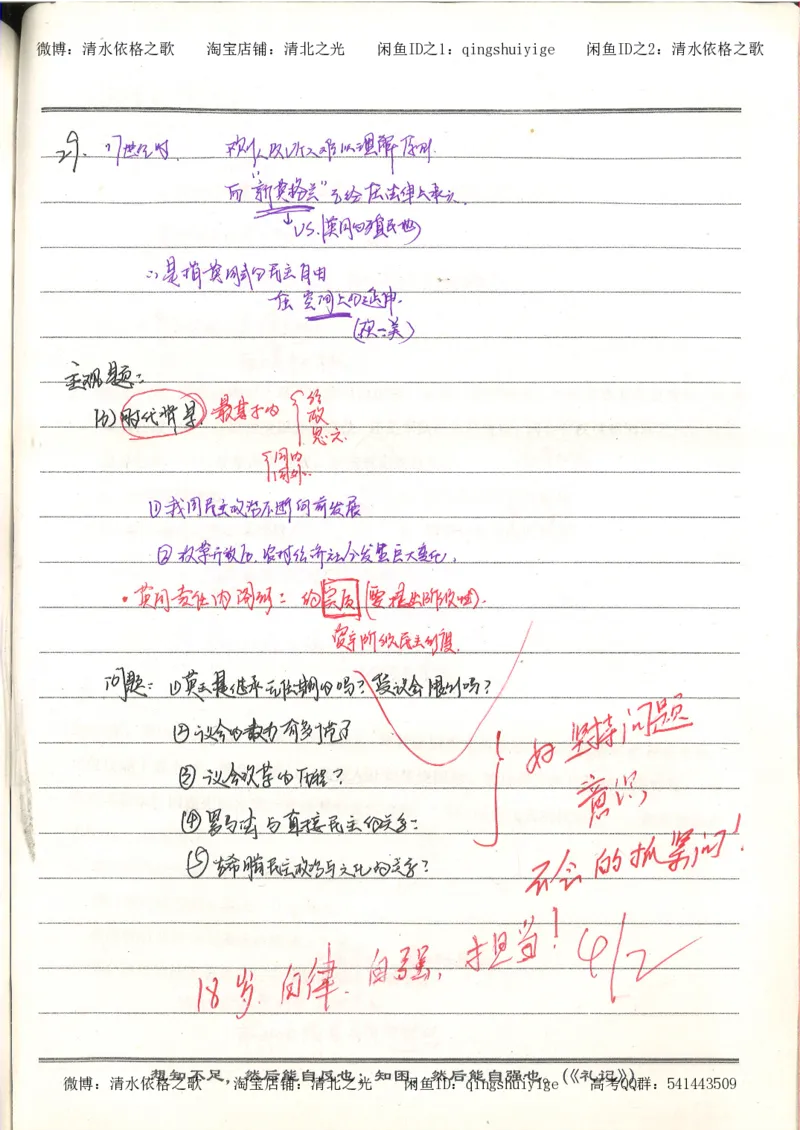 微博：清水依格之歌 淘宝店铺：清北之光 闲鱼ID之1：qingshuiyige 闲鱼ID之2：清水依格之歌
29. 17世纪时, 欧洲人以 难以理解 原则.
而"新英格兰" 在法律上承认.
↓VS.(英国的殖民地)
∴是指英国式的民主自由
在空间上的延伸.
(欧→美)
主观题：
(3)时代背景. 最基本的 { 经 政 思文.
{国内 国外.
①我国民主政治不断向前发展
②改革开放后,农村经济社会发生巨大变化.
·英国责任内阁制：的实质(要提出阶级性).
资产阶级民主制度.
问题：①英王是继承无任期的吗？受议会限制吗？
②议会的权力有多大
③议会改革的历程？
④ 与直接民主的关系：
⑤古希腊民主政治与文化的关系？
好 坚持问题
意识
不会的抓紧问！
18岁.自律.自强,担当！4/2
想知不足，然后能自反也；知困，然后能自强也。(《礼记》)
微博：清水依格之歌 淘宝店铺：清北之光 闲鱼ID：qingshuiyige 高考QQ群：541443509